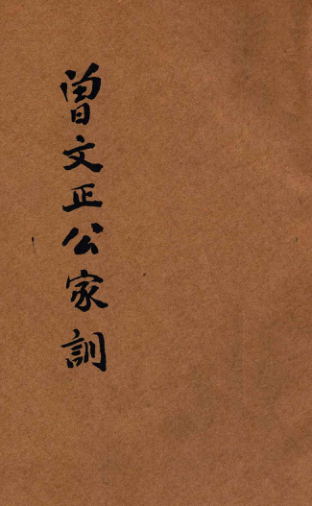 曾文正公家訓